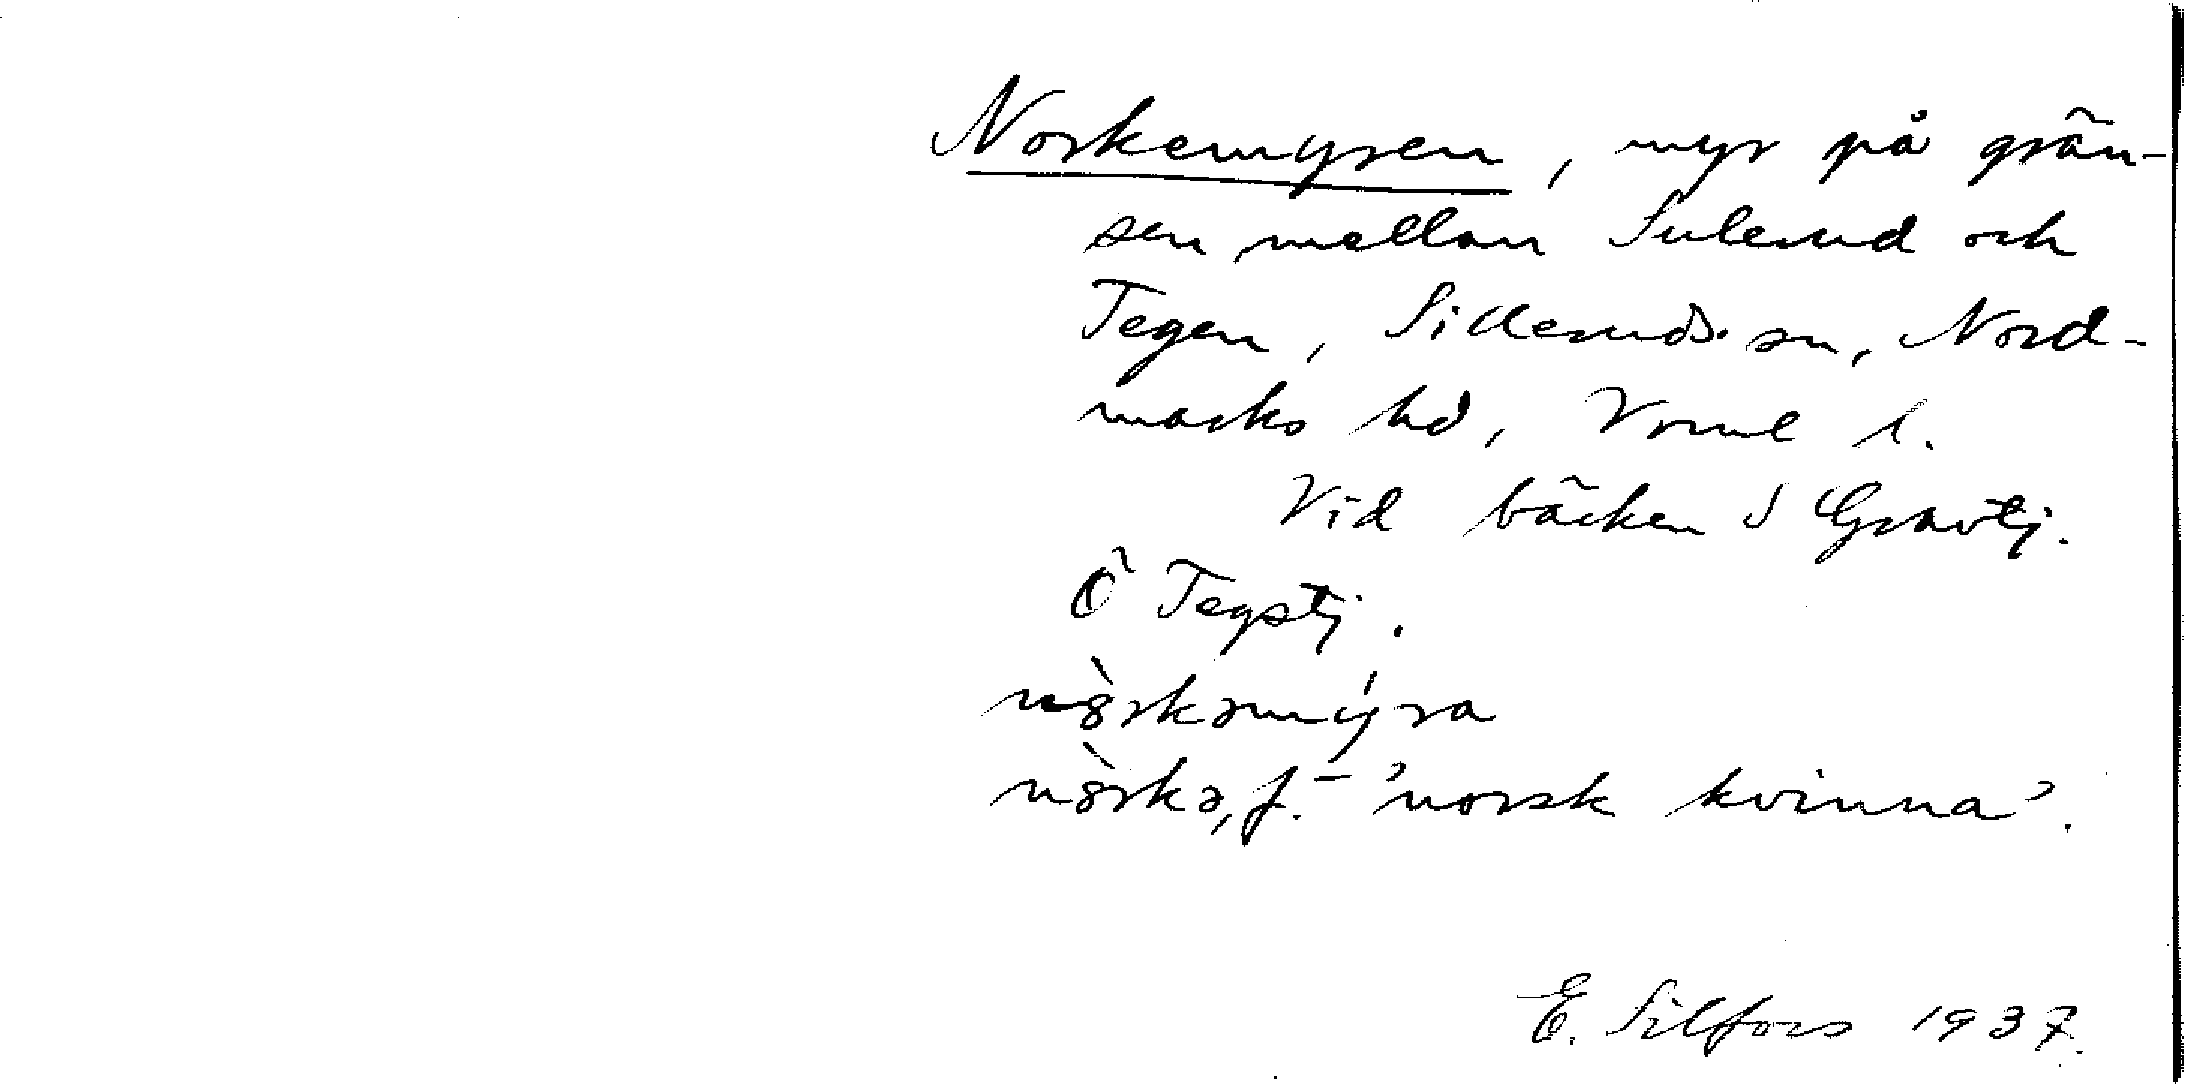 Norkemyren, myr på grän-
sen mellan Sulerud och
Tegen, Silleruds sn, Nord-
marks hd, Vrml l.
Vid bäcken S Gravtj.
Ö Tegstj.
nò̈rkəmýra
nòrkə, f. - 'norsk kvinna'.
E. Silfors 1937.